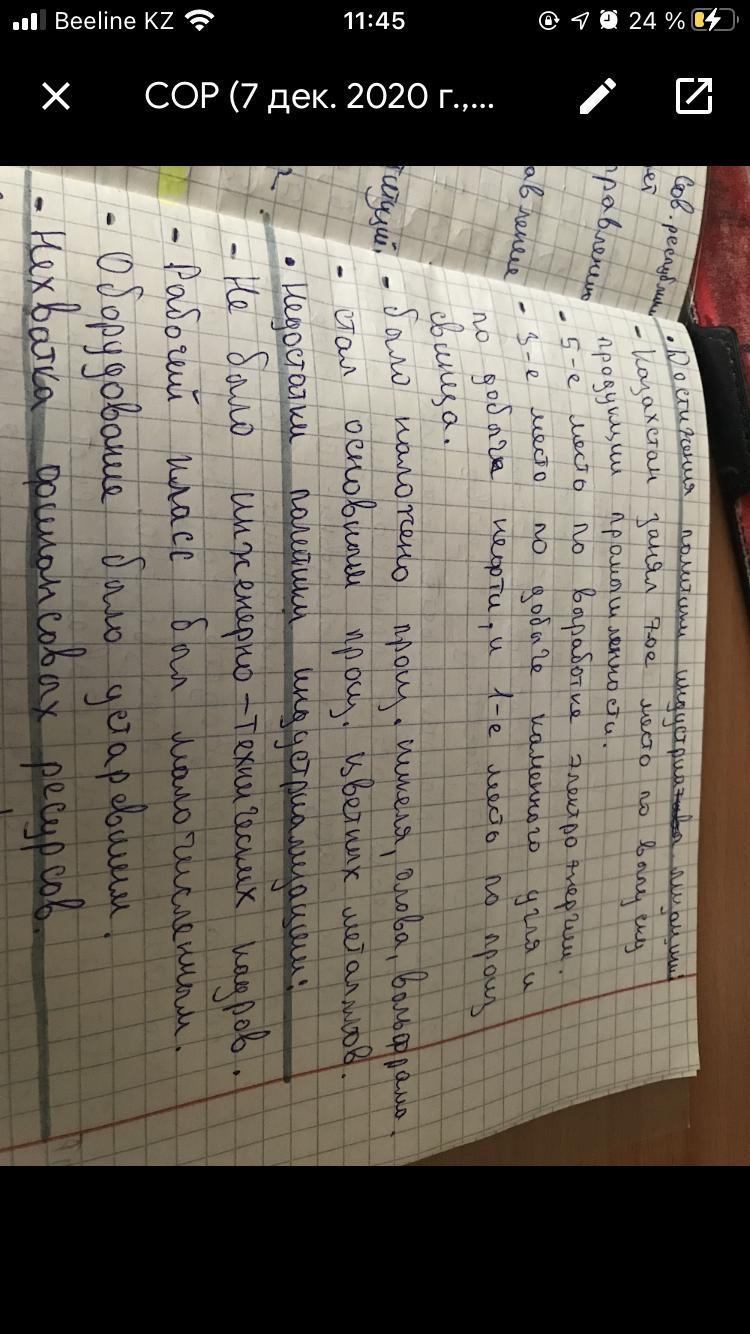 Beeline KZ 11:45 24 %
СОР (7 дек. 2020 г.,...
Сов. республики
правлению
авление
• Достижения политики индустриализации
- Казахстан занял 7ое место по выпуску
продукции промышленности.
- 5-е место по выработке электроэнергии.
- 3-е место по добыче каменного угля и
по добыче нефти, и 1-е место по произ
свинца.
- было наложено произ. никеля, олова, вольфрама.
- стал основным произ. цветных металлов.
• Недостатки политики индустриализации:
- Не было инженерно-технических кадров.
- Рабочий класс был малочисленным.
- Оборудование было устаревшим.
- Нехватка финансовых ресурсов.